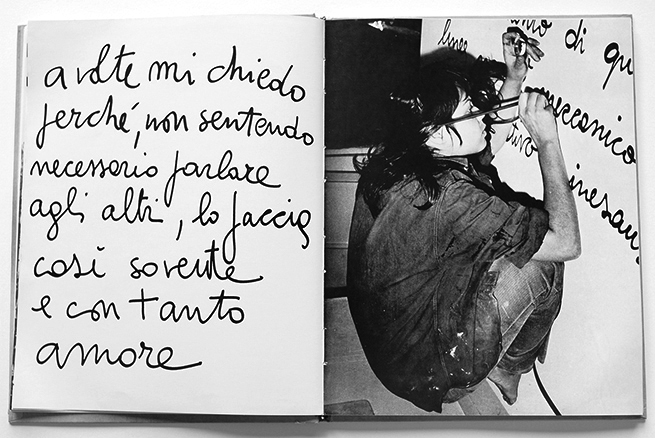 a volte mi chiedo
perché, non sentendo
necessario parlare
agli altri, lo faccia
così sovente
e con tanto
amore
di qu
meccanico